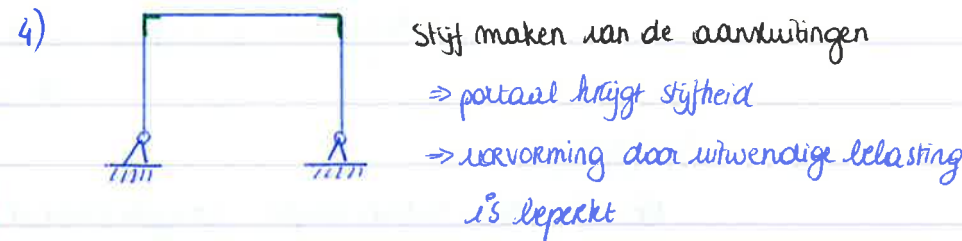 4)
Stijf maken van de aansluitingen
⇒ portaal krijgt stijfheid
⇒ vervorming door uitwendige belasting
is beperkt